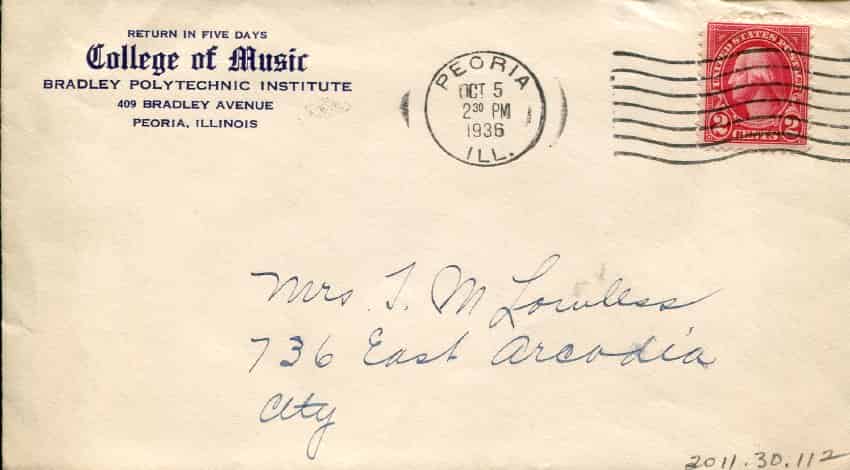 RETURN IN FIVE DAYS
College of Music
BRADLEY POLYTECHNIC INSTITUTE
409 BRADLEY AVENUE
PEORIA, ILLINOIS
PEORIA
OCT 5
2 30 PM
1936
ILL.
UNITED STATES POSTAGE
2 2
Mrs. T. M Lowless
736 East Arcadia
City
2011.30.112